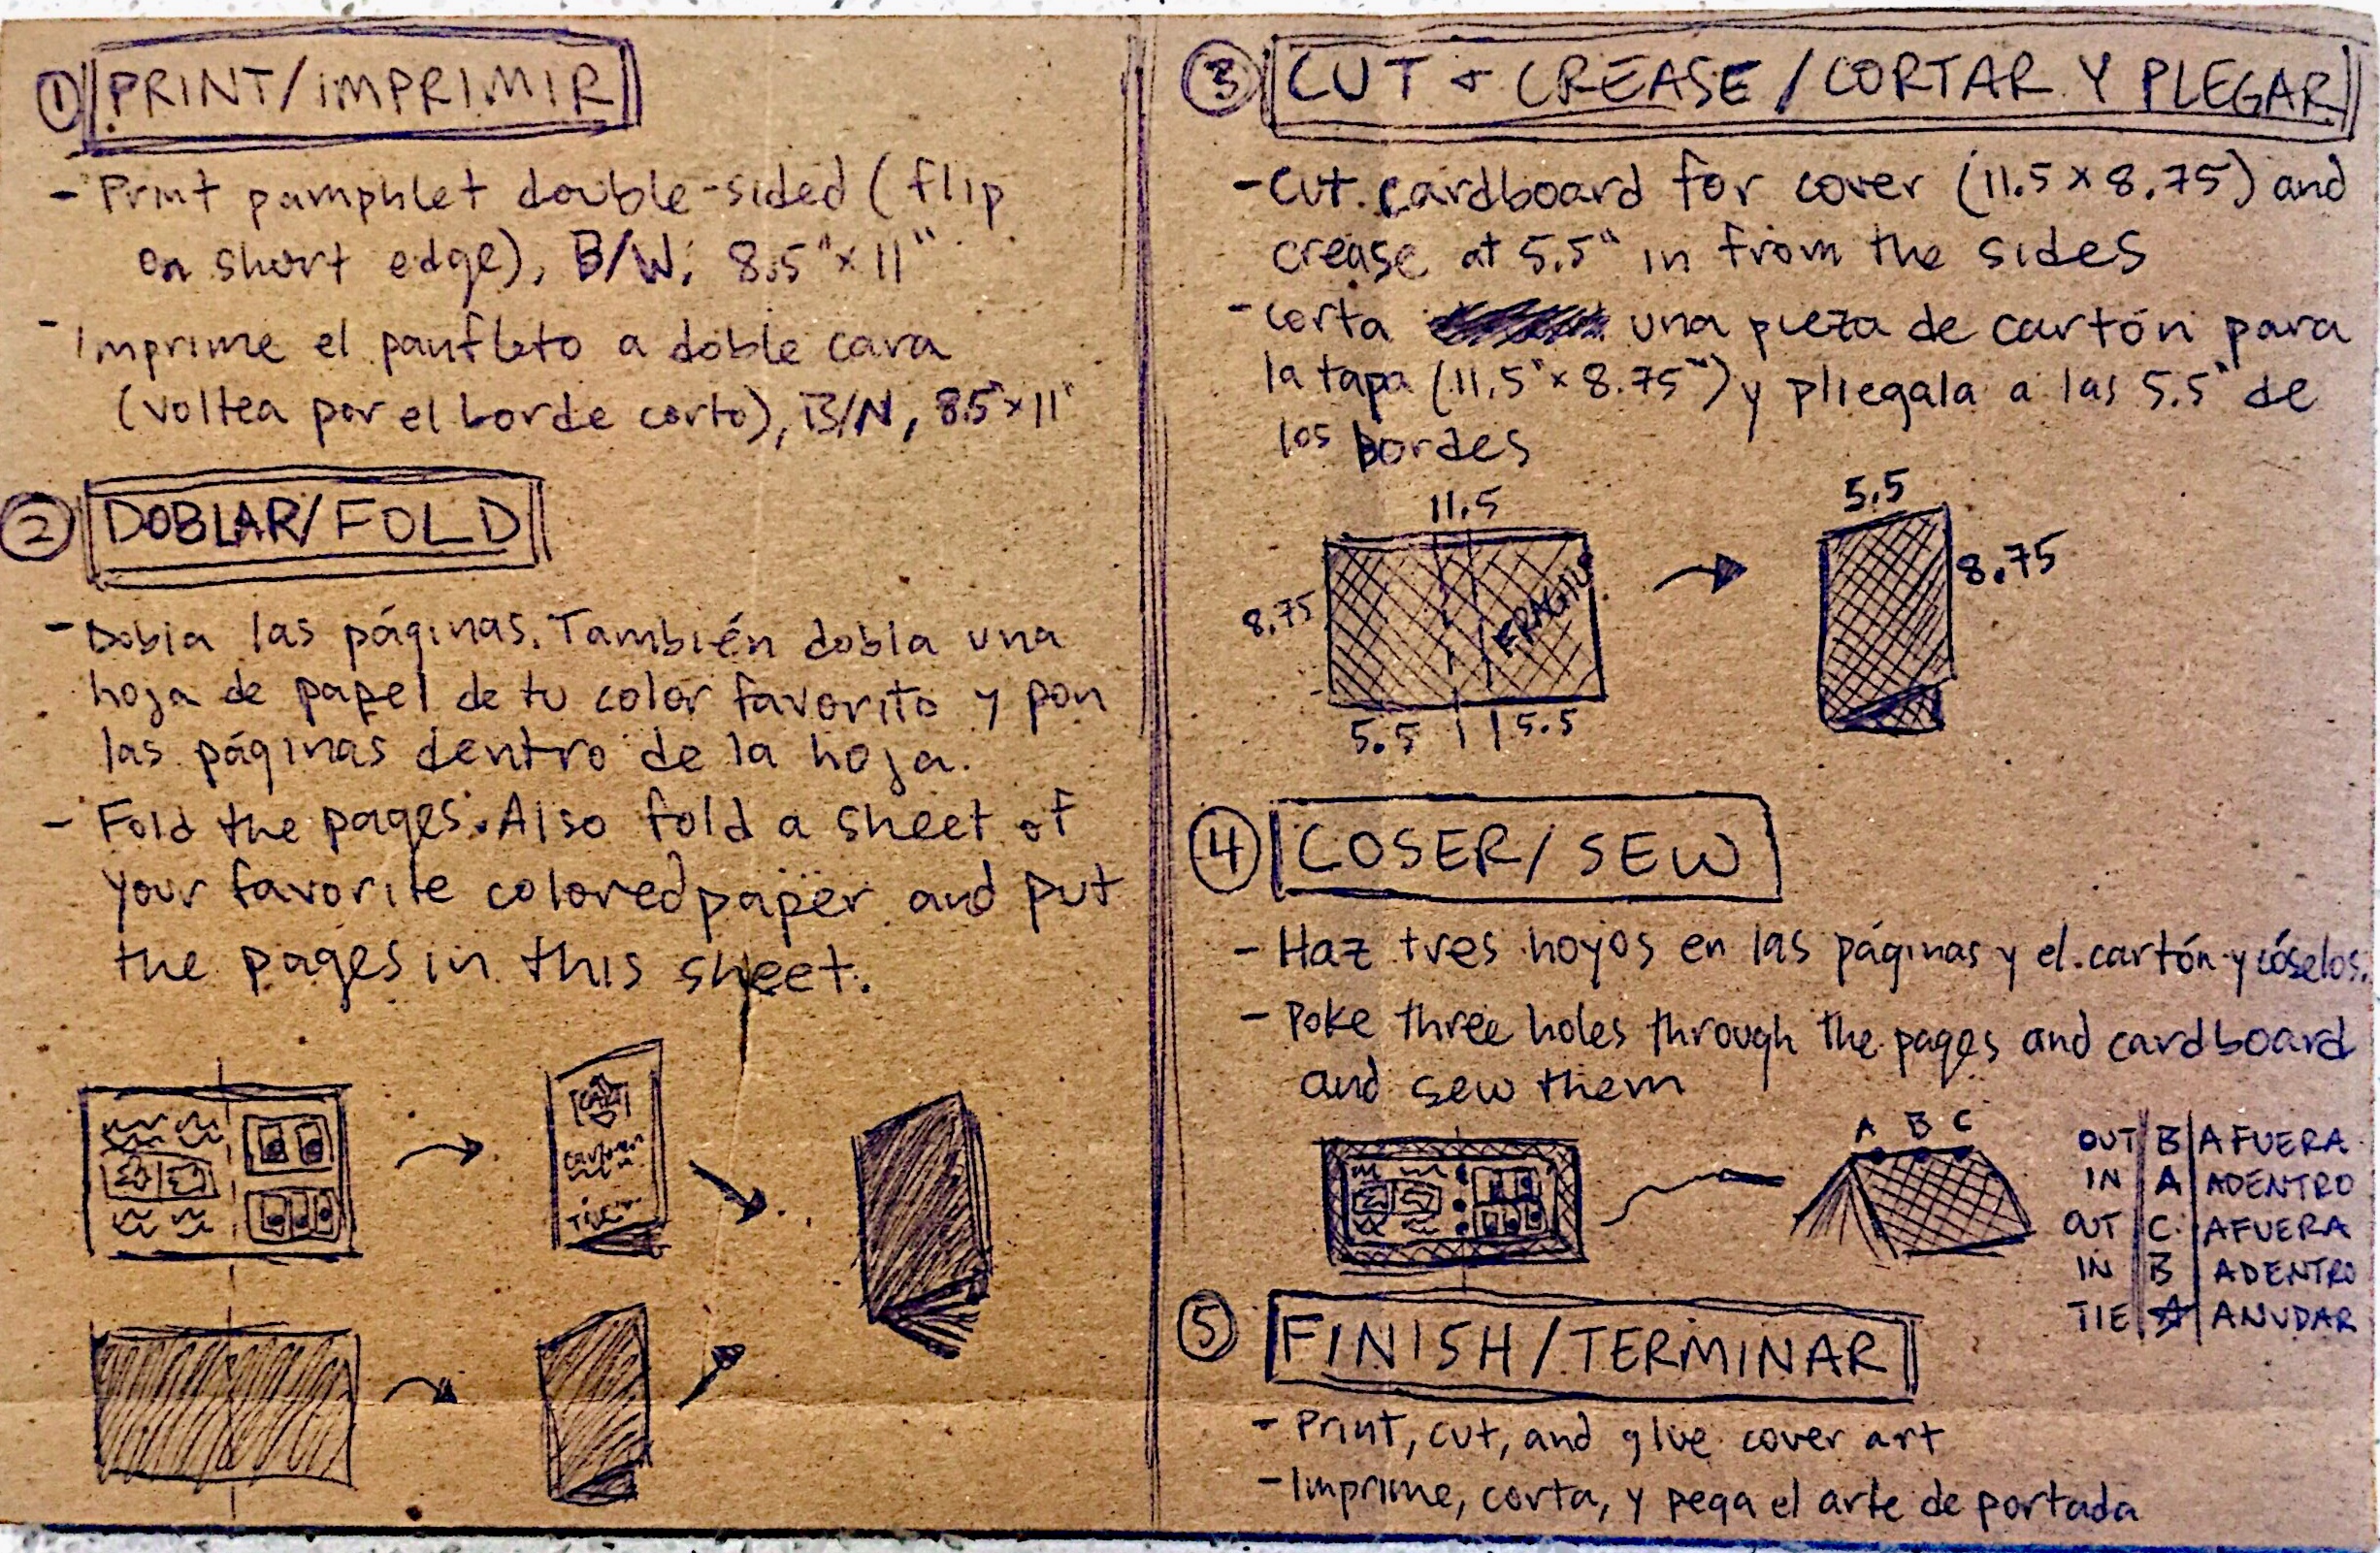 ① PRINT/IMPRIMIR
- Print pamphlet double-sided (flip
on short edge), B/W, 8.5"x11"
- Imprime el panfleto a doble cara
(voltea por el borde corto), B/N, 8.5"x11"
② DOBLAR/FOLD
- Dobla las páginas. También dobla una
hoja de papel de tu color favorito y pon
las páginas dentro de la hoja.
- Fold the pages. Also fold a sheet of
your favorite colored paper and put
the pages in this sheet.
③ CUT + CREASE / CORTAR Y PLEGAR
- Cut cardboard for cover (11.5 x 8.75) and
crease at 5.5" in from the sides
- Corta una pieza de cartón para
la tapa (11.5" x 8.75") y pliegala a las 5.5" de
los bordes
11.5
8.75
FRAGILE
5.5 5.5
5.5
8.75
④ COSER/SEW
- Haz tres hoyos en las páginas y el cartón y cóselos.
- Poke three holes through the pages and cardboard
and sew them
A B C
OUT B AFUERA
IN A ADENTRO
OUT C AFUERA
IN B ADENTRO
TIE ANUDAR
⑤ FINISH/TERMINAR
- Print, cut, and glue cover art
- Imprime, corta, y pega el arte de portada